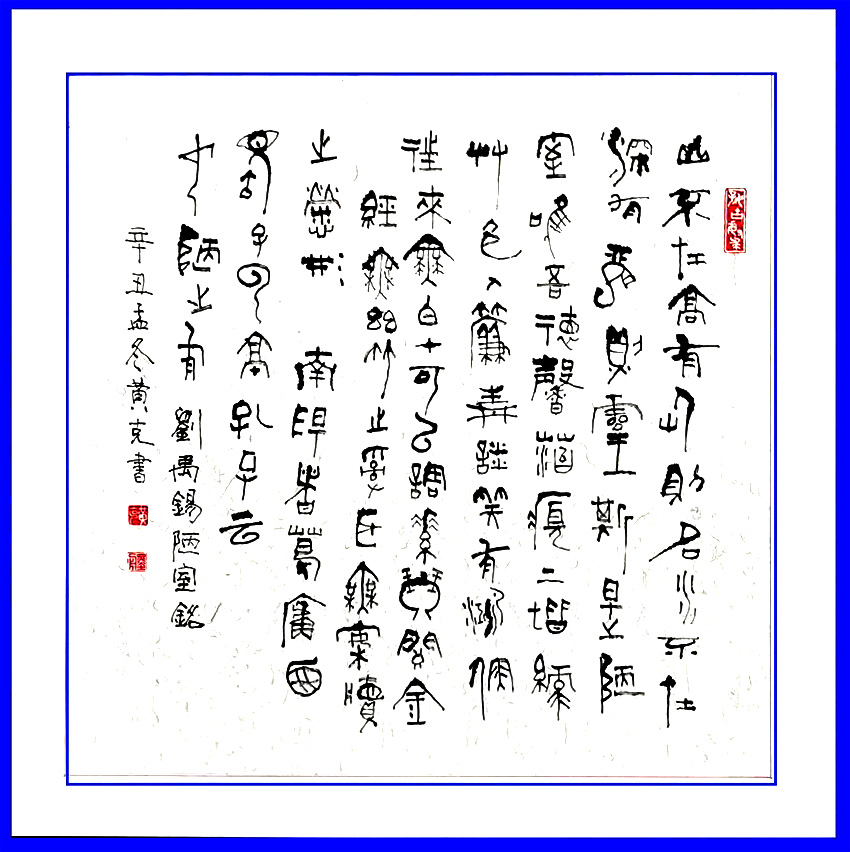 山不在高有仙則名水不在
深有龍則靈斯是陋
室唯吾德馨苔痕上階綠
艸色入簾青談笑有鴻儒
往來無白丁可以調素琴閱金
經無絲竹之亂耳無案牘
之勞形 南陽諸葛廬西
蜀子雲亭孔子云
何陋之有 劉禹錫陋室銘
辛丑孟冬黃克書